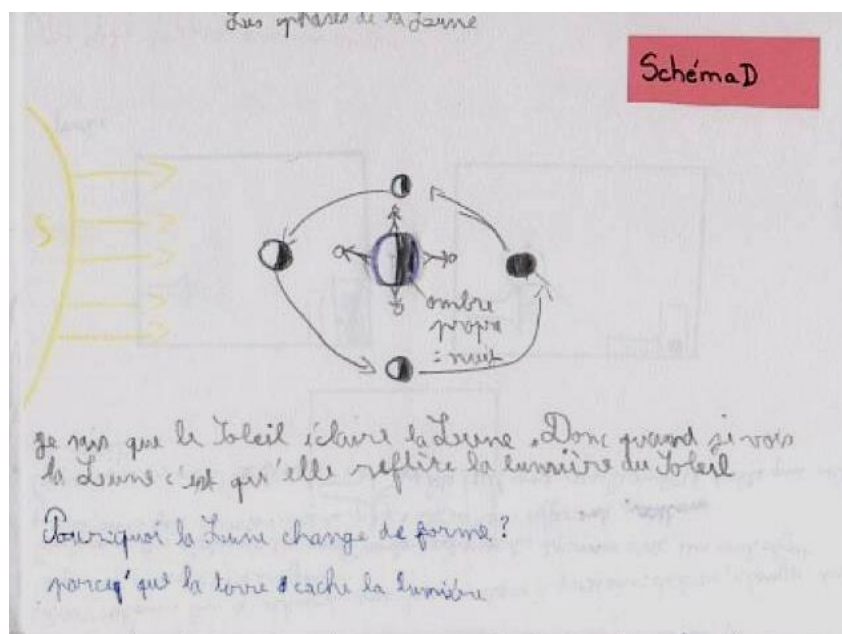 Les phases de la Lune
Schéma D
S
ombre
propre
= nuit
Je sais que le Soleil éclaire la Lune. Donc quand je vois
la Lune c'est qu'elle reflète la lumière du Soleil
Pourquoi la Lune change de forme?
parceq' que la terre cache la lumière